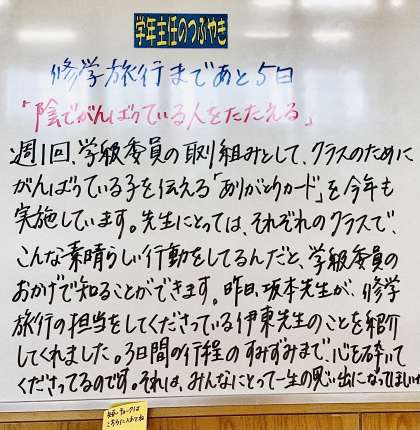 学年主任のつぶやき
修学旅行まであと5日
「陰でがんばっている人をたたえる」
週1回、学級委員の取り組みとして、クラスのために
がんばっている子を伝える「ありがとうカード」を今年も
実施しています。先生にとっては、それぞれのクラスで、
こんな素晴らしい行動をしてるんだと、学級委員の
おかげで知ることができます。昨日、坂本先生が、修学
旅行の担当をしてくださっている伊東先生のことを紹介
してくれました。3日間の行程のすみずみまで、心を砕いて
くださってるのです。それは、みんなにとって一生の思い出になってほしい
こちらに入れてね